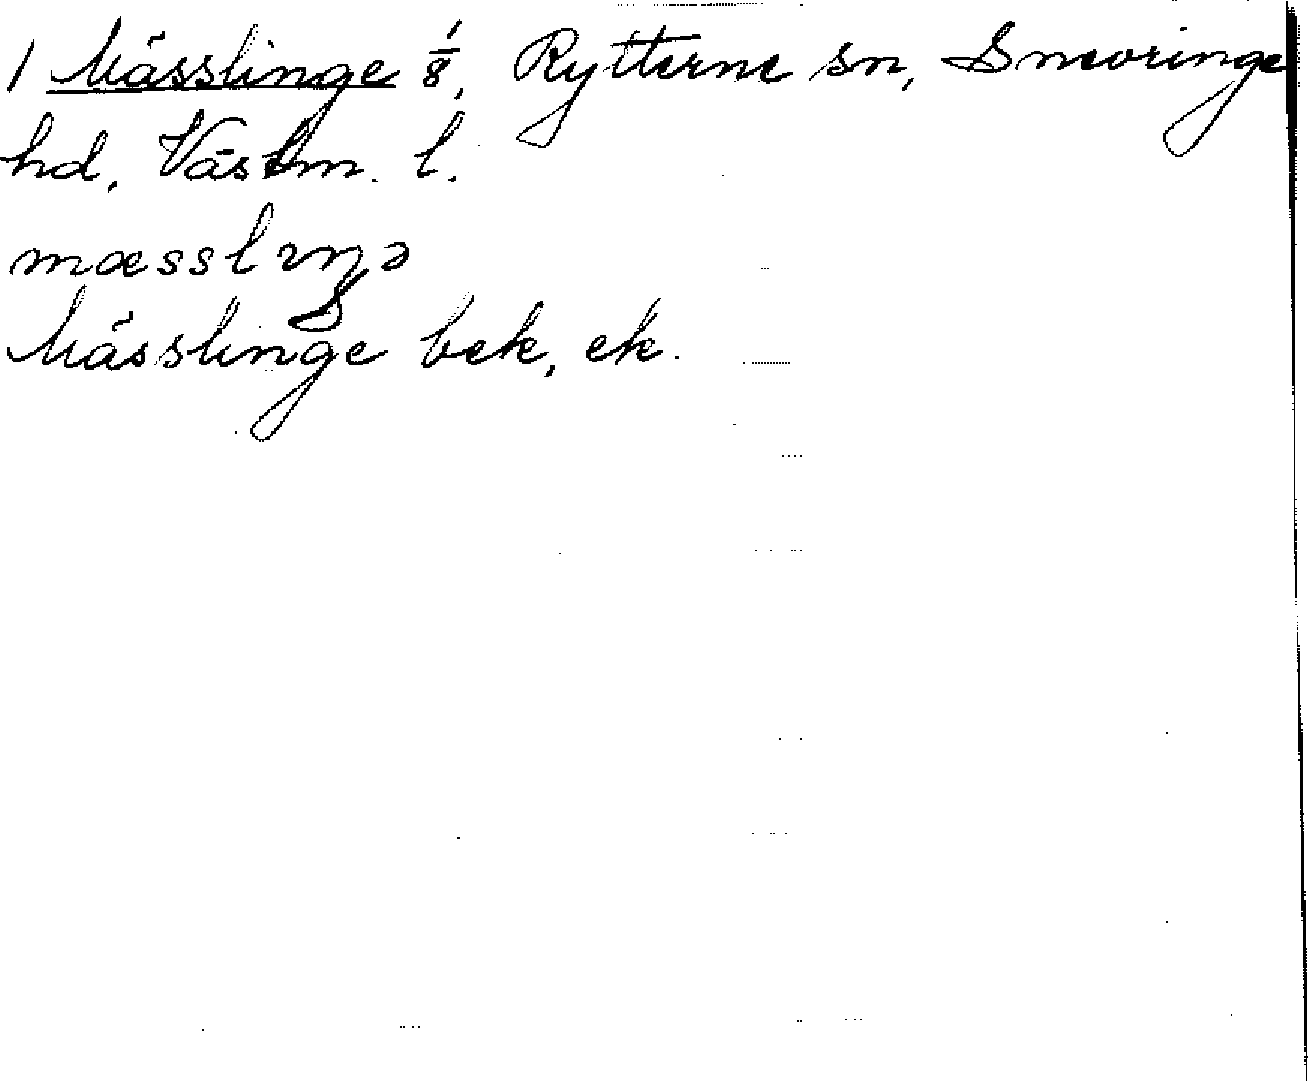 1 Mässlinge 1/8, Rytterne sn, Snevringe
hd, Västm. l.
mæsslıŋə
Mässlinge bek, ek.